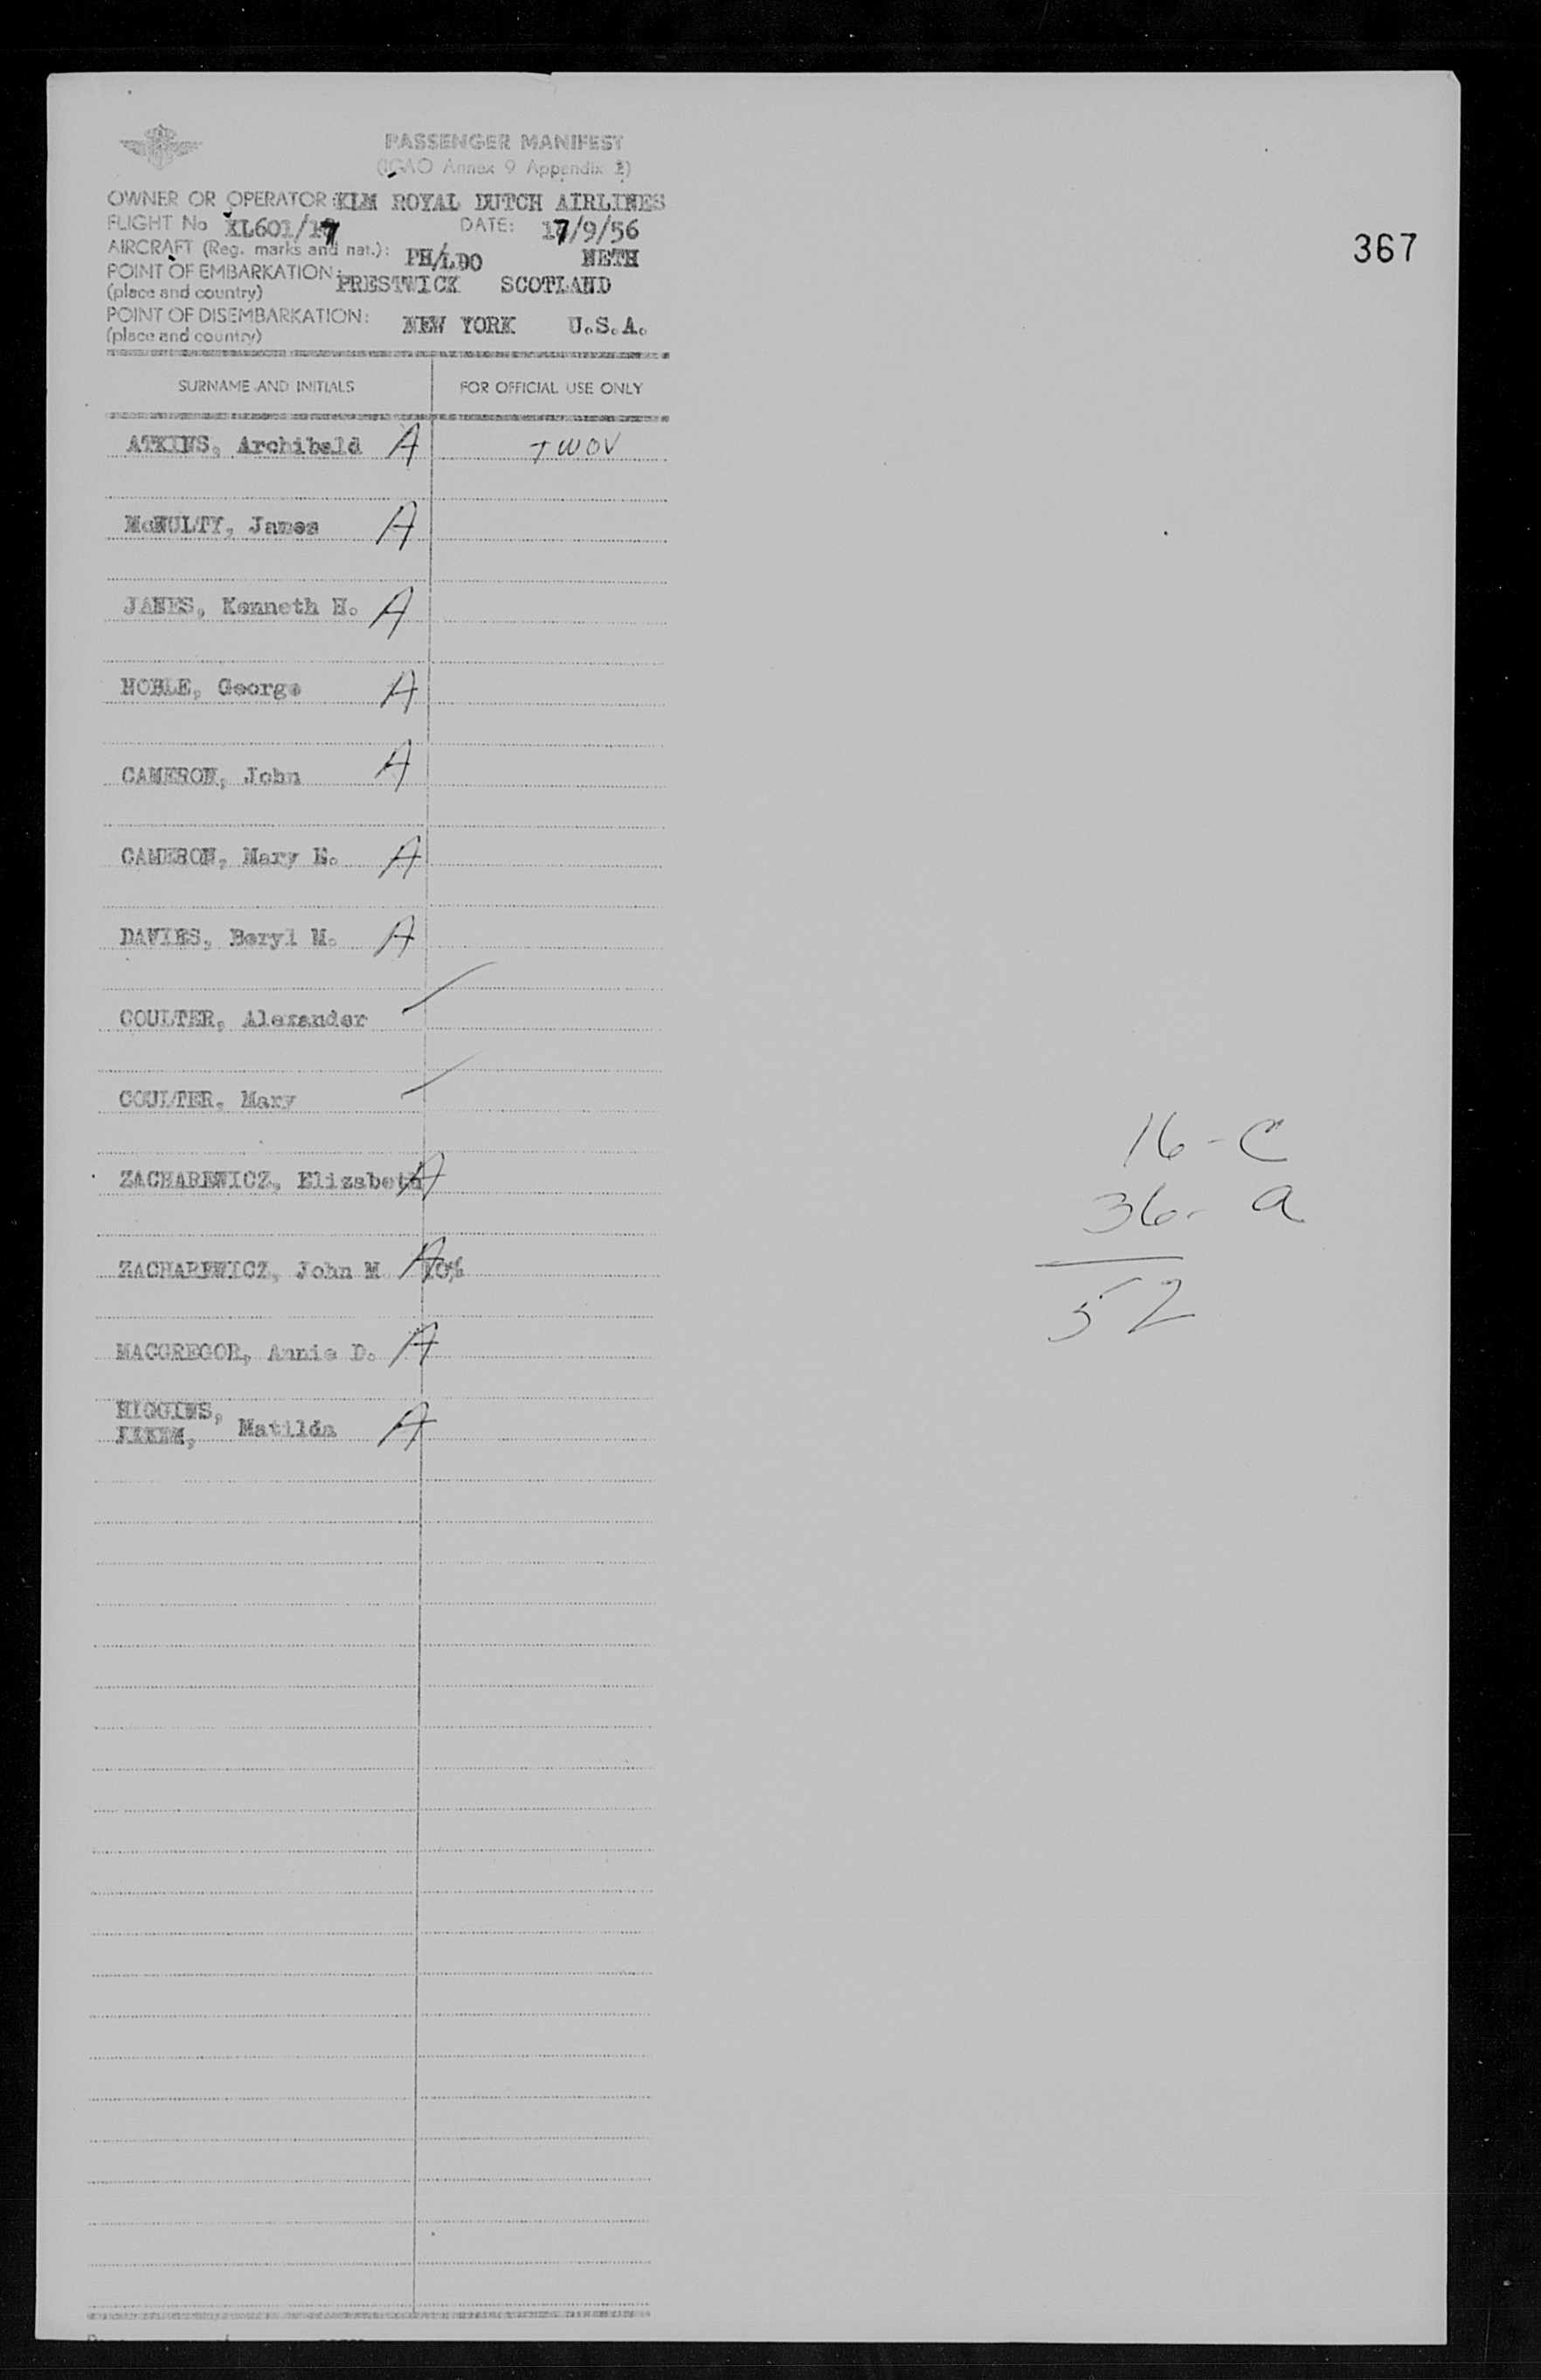 PASSENGER MANIFEST
(ICAO Annex 9 Appendix 2)
OWNER OR OPERATOR: KLM ROYAL DUTCH AIRLINES
FLIGHT No KL601/17 DATE: 17/9/56
AIRCRAFT (Reg. marks and nat.): PH/LDO NETH
POINT OF EMBARKATION: PRESTWICK SCOTLAND
(place and country)
POINT OF DISEMBARKATION: NEW YORK U.S.A.
(place and country)
367
SURNAME AND INITIALS FOR OFFICIAL USE ONLY
ATKINS, Archibald A TWOV
McNULTY, James A
JANES, Kenneth H. A
NOBLE, George A
CAMERON, John A
CAMERON, Mary E. A
DAVIES, Beryl M. A
COULTER, Alexander
COULTER, Mary
16 - C
ZACHAREWICZ, Elizabeth A
36 - a
ZACHAREWICZ, John M A 10%
52
MACGREGOR, Annie D. A
HIGGINS,
Matilda A